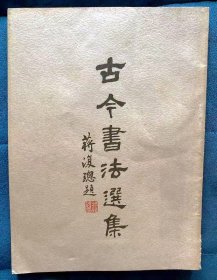 古今書法選集
蔣復璁題